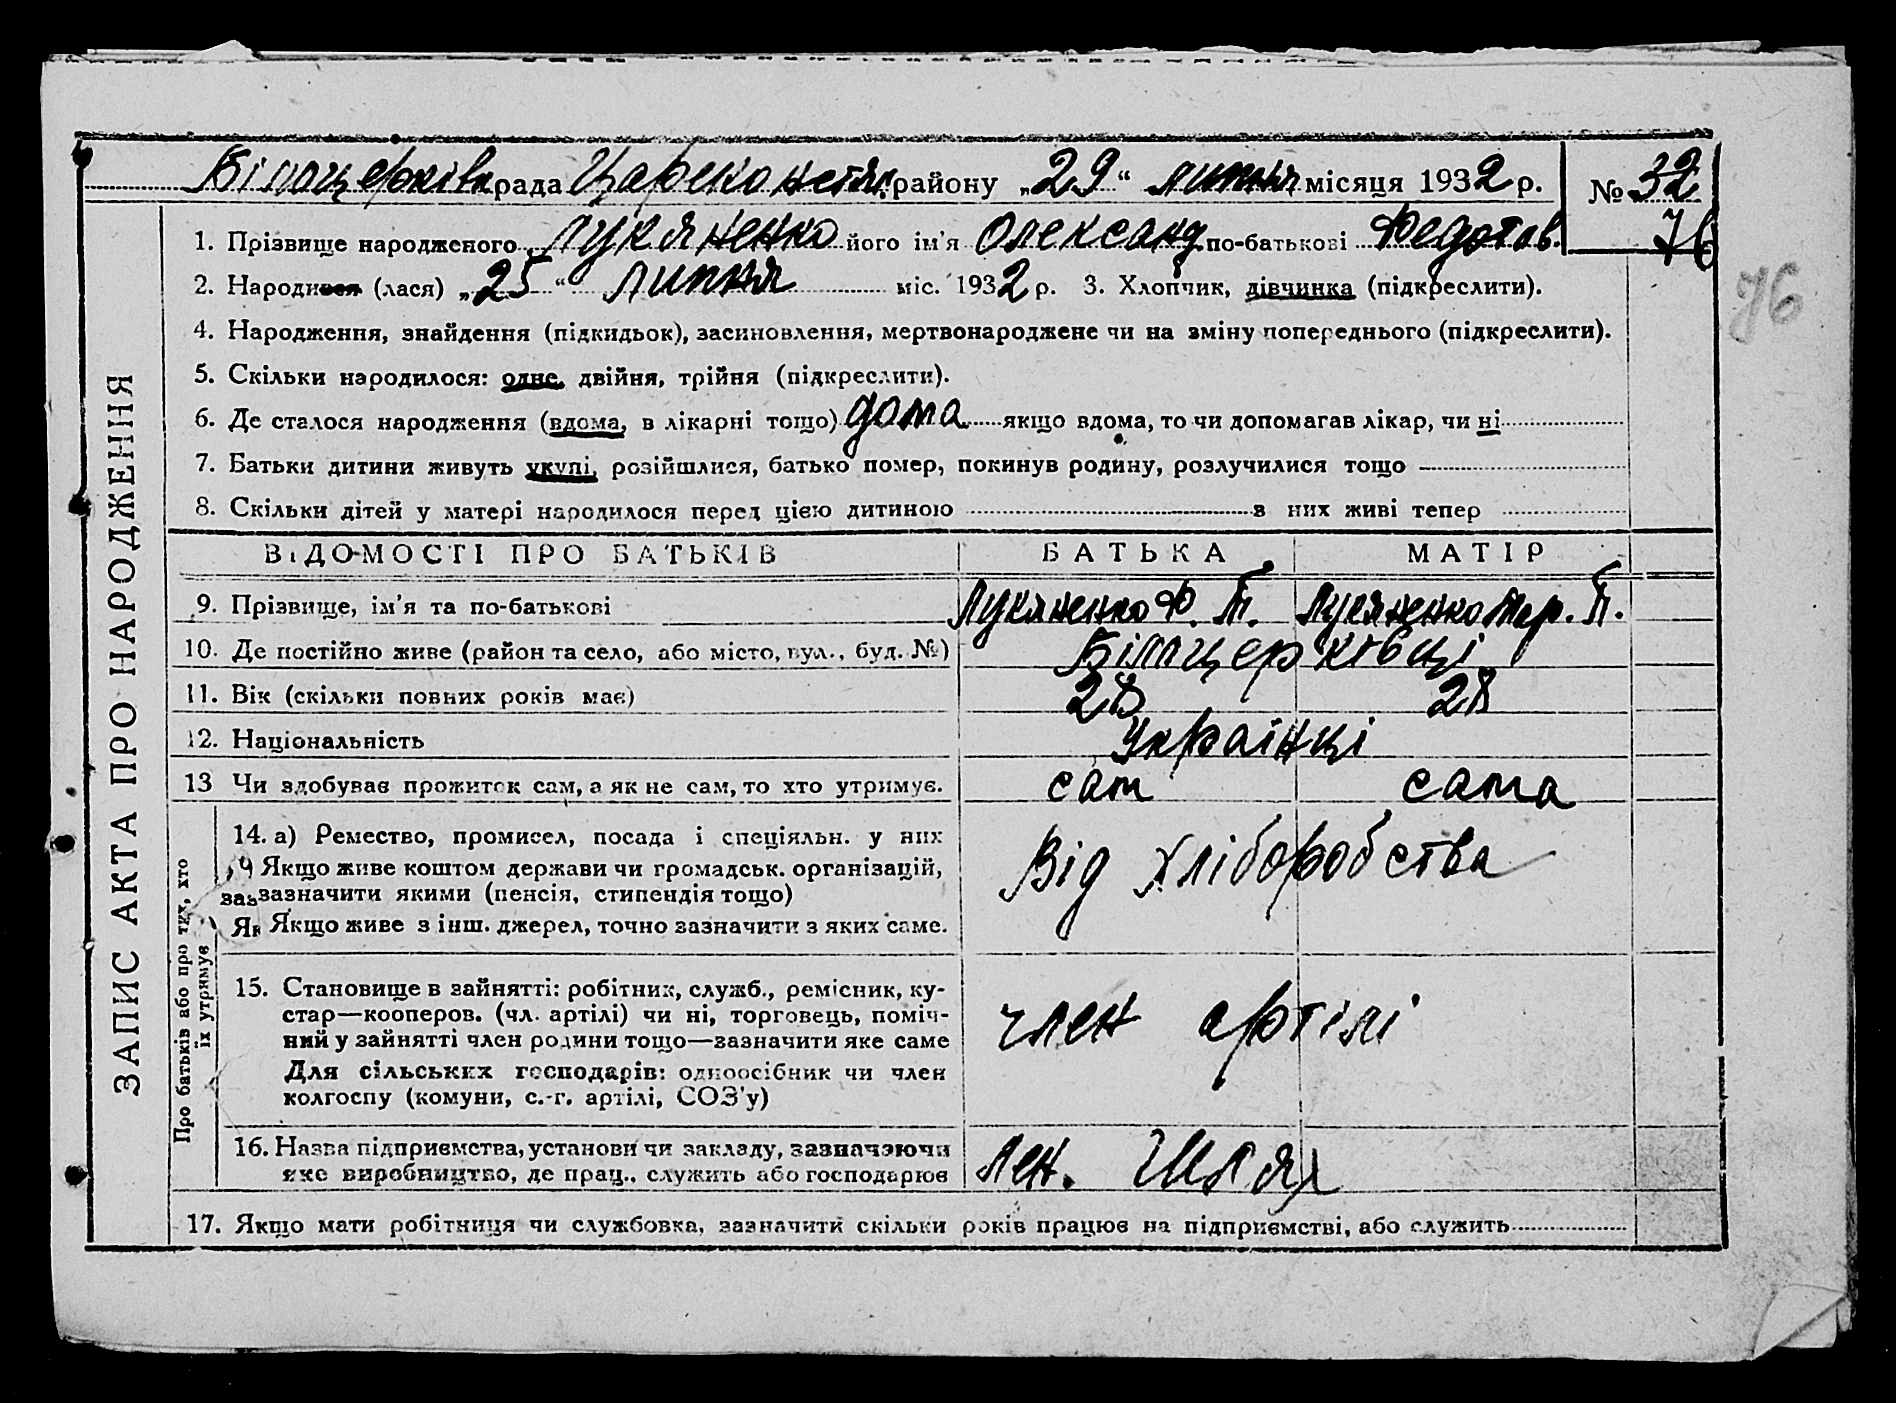 Білоцерківк рада Царекокостян. району „29“ липня місяця 1932 р. № 32
76
1. Прізвище народженого Лукяненко його ім'я Олександ по-батькові Федотов.
76
2. Народився (лася) „25“ липня міс. 1932 р. 3. Хлопчик, дівчинка (підкреслити).
4. Народження, знайдення (підкидьок), засиновлення, мертвонароджене чи на зміну попереднього (підкреслити).
5. Скільки народилося: одне, двійня, трійня (підкреслити).
6. Де сталося народження (вдома, в лікарні тощо) дома якщо вдома, то чи допомагав лікар, чи ні
7. Батьки дитини живуть укупі, розійшлися, батько помер, покинув родину, розлучилися тощо
8. Скільки дітей у матері народилося перед цією дитиною з них живі тепер
ЗАПИС АКТА ПРО НАРОДЖЕННЯ
ВІДОМОСТІ ПРО БАТЬКІВ БАТЬКА МАТІР
9. Прізвище, ім'я та по-батькові Лукяненко Ф. Т. Лукяненко Мар. Т.
10. Де постійно живе (район та село, або місто, вул., буд. №) Білоцерківці
11. Вік (скільки повних років має) 28 28
12. Національність Українці
13 Чи здобуває прожиток сам, а як не сам, то хто утримує. сам сама
Про батьків або про тих, хто
їх утримує
14. а) Ремество, промисел, посада і спеціяльн. у них Від хліборобства
Якщо живе коштом держави чи громадськ. організацій,
зазначити якими (пенсія, стипендія тощо)
Якщо живе з інш. джерел, точно зазначити з яких саме.
15. Становище в зайнятті: робітник, служб., ремісник, ку-
стар—кооперов. (чл. артілі) чи ні, торговець, поміч- член артілі
ний у зайнятті член родини тощо—зазначити яке саме
Для сільських господарів: одноосібник чи член
колгоспу (комуни, с.-г. артілі, СОЗ'у)
16. Назва підприємства, установи чи закладу, зазначаючи
яке виробництво, де прац., служить або господарює Лен. Шлях
17. Якщо мати робітниця чи службовка, зазначити скільки років працює на підприємстві, або служить